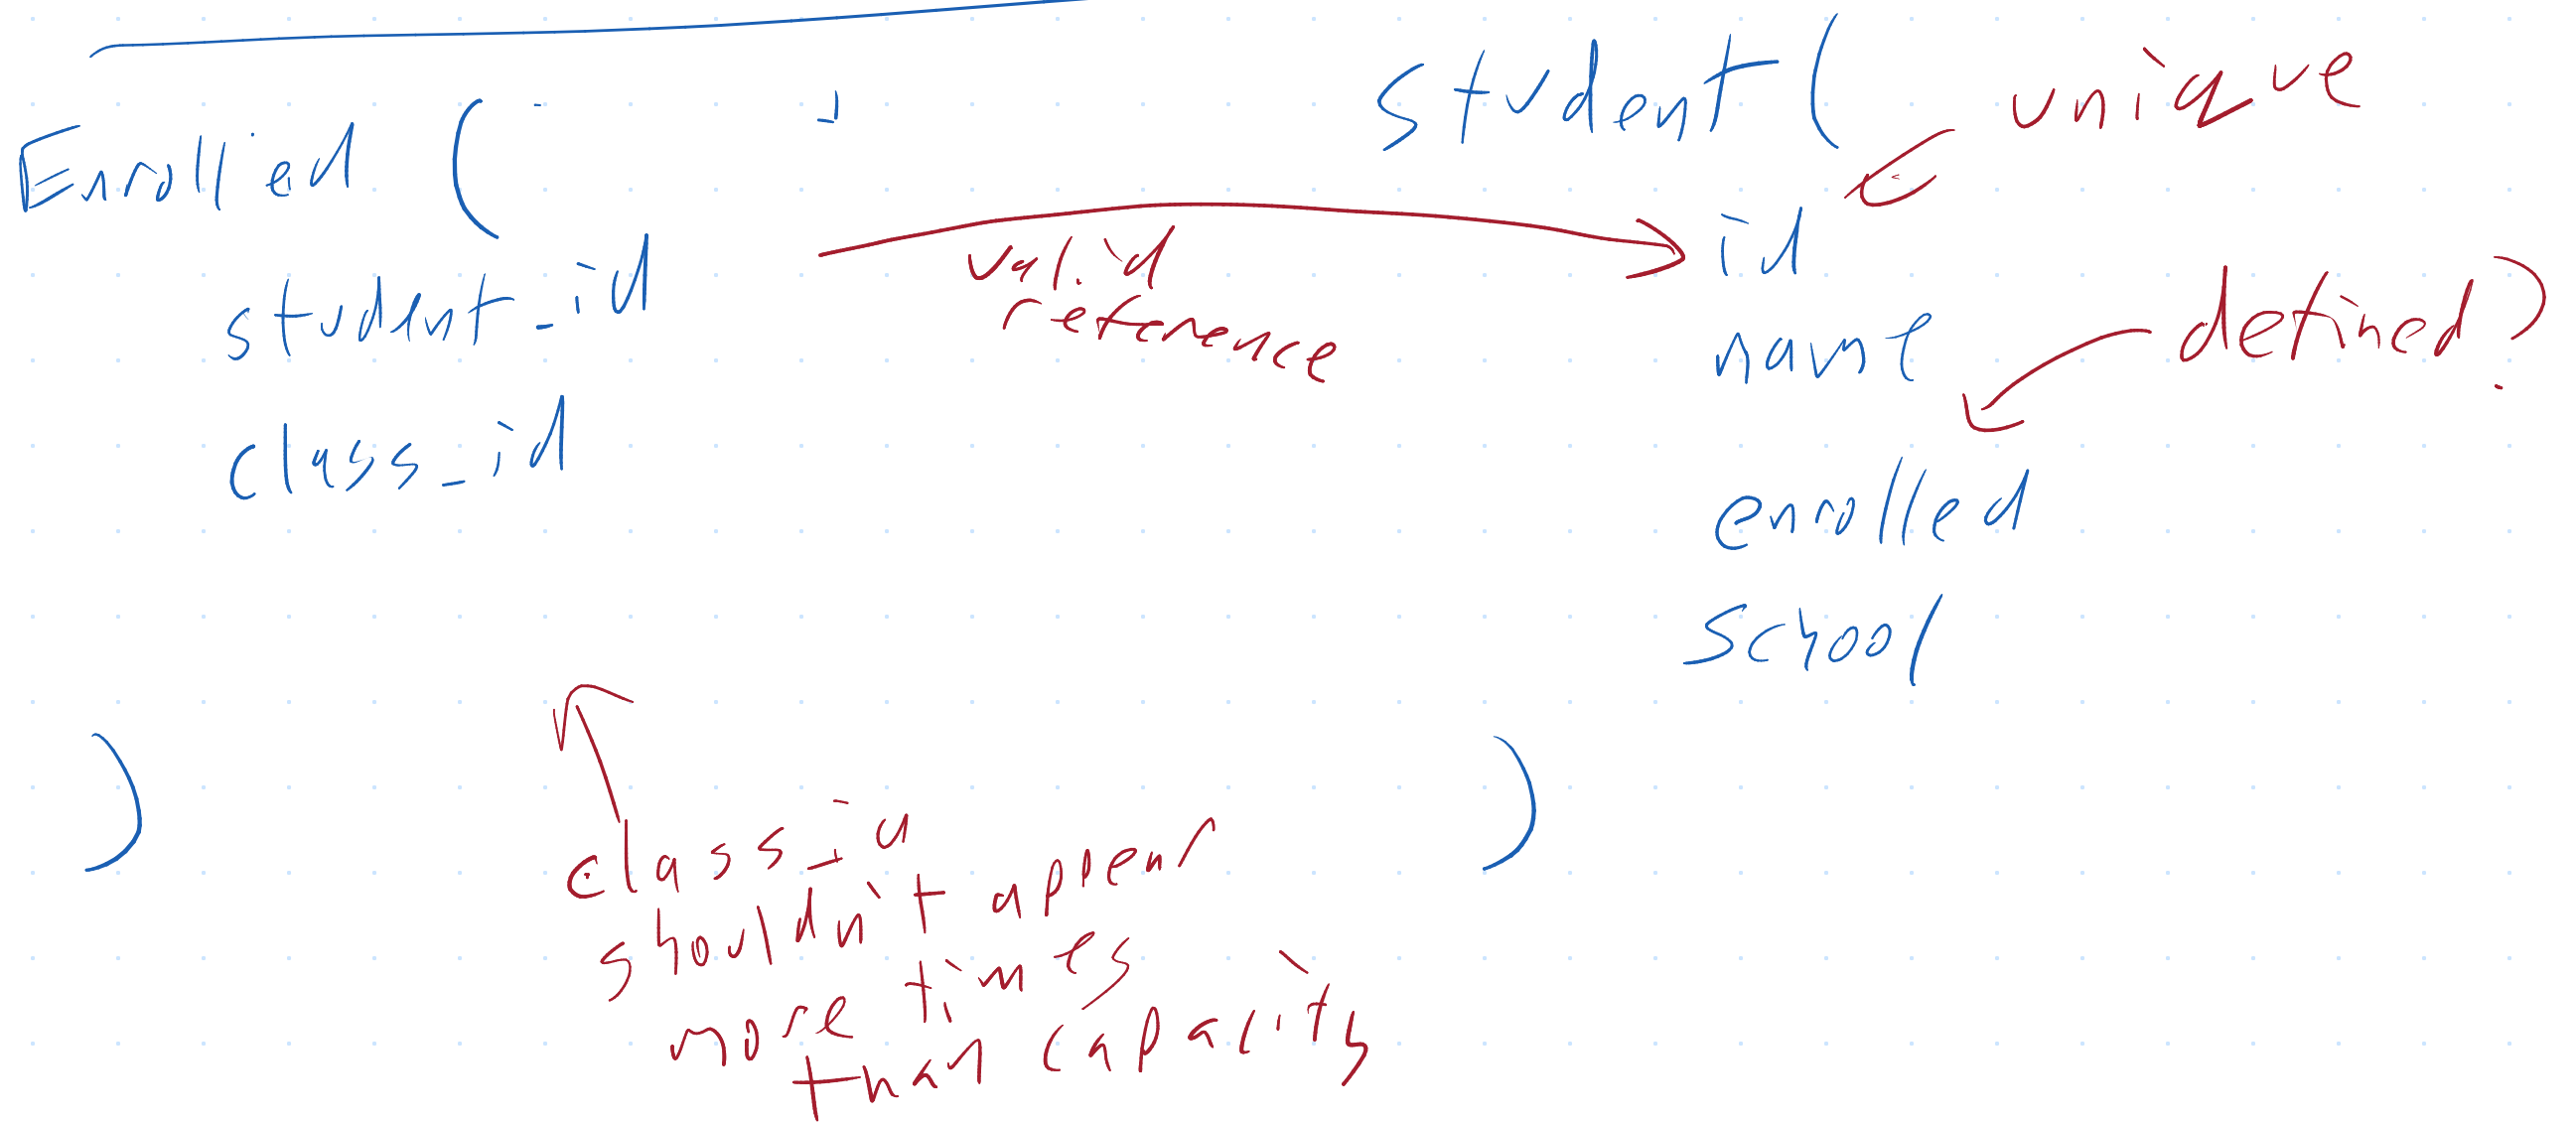 Enrolled (
student_id
class_id
)
valid
reference
student (
unique
id
name
defined?
enrolled
school
)
class_id
shouldn't appear
more times
than capacity